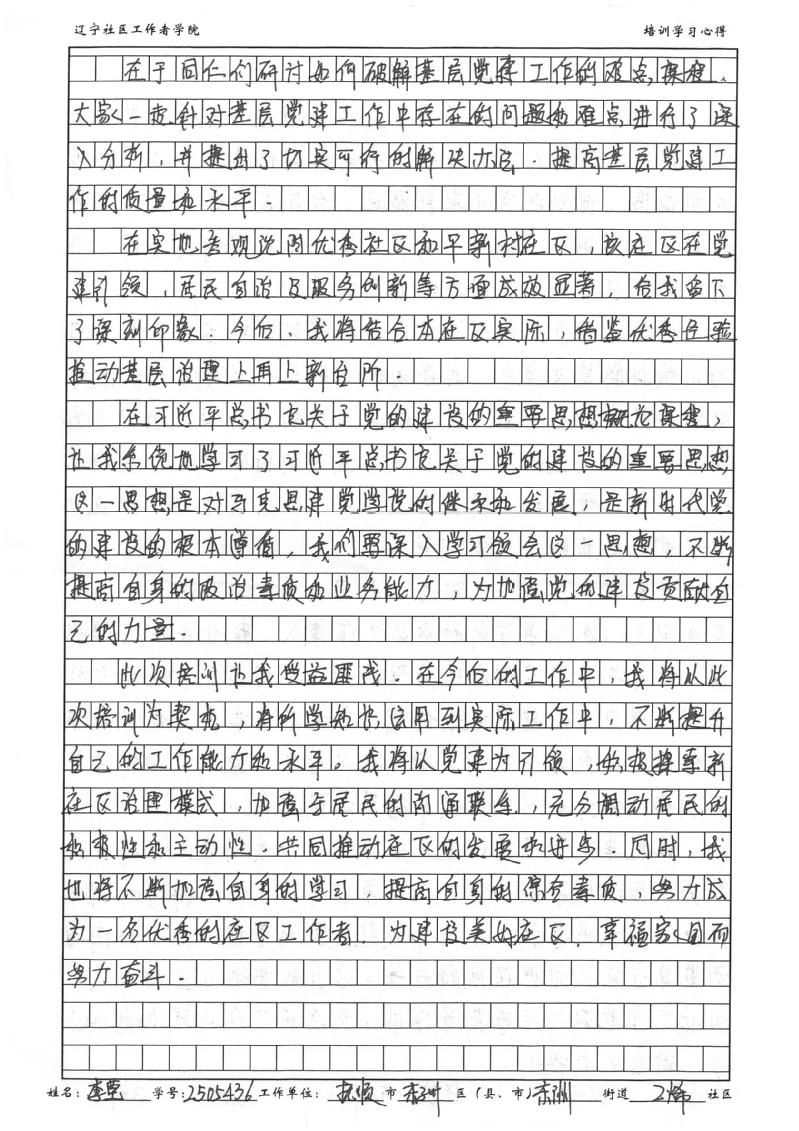 辽宁社区工作者学院 培训学习心得
在于同仁们研讨如何破解基层党建工作的难点课程、
大家一起针对基层党建工作中存在的问题和难点进行了深
入分析，并提出了切实可行的解决办法．提高基层党建工
作的质量和水平．
在实地参观沈阳优秀社区和平新村社区，该社区在党
建引领，居民自治及服务创新等方面成效显著，给我留下
了深刻印象．今后、我将结合本社区实际，借鉴优秀经验
推动基层治理上再上新台阶．
在习近平总书记关于党的建设的重要思想概论课程，
让我系统地学习了习近平总书记关于党的建设的重要思想
这一思想是对马克思建党学说的继承和发展，是新时代党
的建设的根本遵循，我们要深入学习领会这一思想，不断
提高自身的政治素质和业务能力，为加强党的建设贡献自
己的力量．
此次培训让我受益匪浅．在今后的工作中，我将以此
次培训为契机，将所学知识运用到实际工作中，不断提升
自己的工作能力和水平。我将以党建为引领，积极探索新
社区治理模式，加强与居民的沟通联系，充分调动居民的
积极性和主动性．共同推动社区的发展和进步．同时，我
也将不断加强自身的学习，提高自身的综合素质，努力成
为一名优秀的社区工作者．为建设美好社区．幸福家园而
努力奋斗．
姓名： 学号：2505436 工作单位： 抚顺 市 东洲 区（县、市）东洲 街道 社区